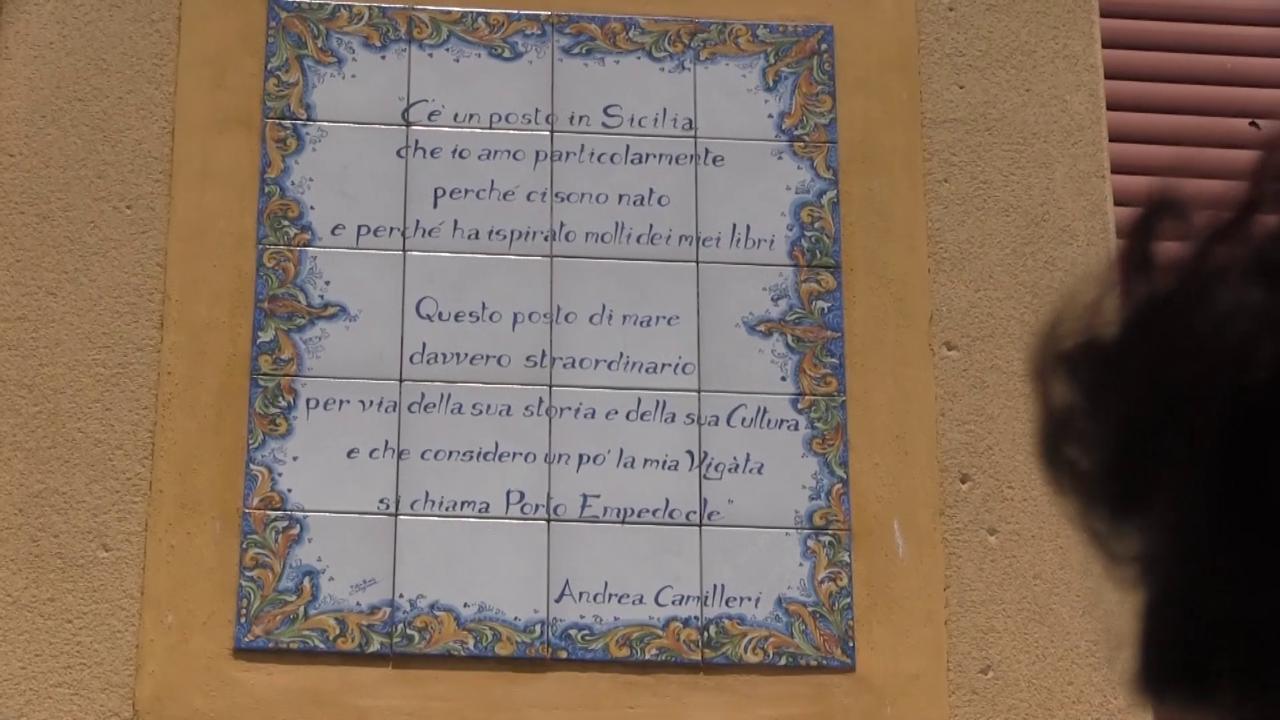 "C'è un posto in Sicilia
che io amo particolarmente
perché ci sono nato
e perché ha ispirato molti dei miei libri
Questo posto di mare
davvero straordinario
per via della sua storia e della sua Cultura
e che considero un po' la mia Vigàta
si chiama Porto Empedocle"
Andrea Camilleri